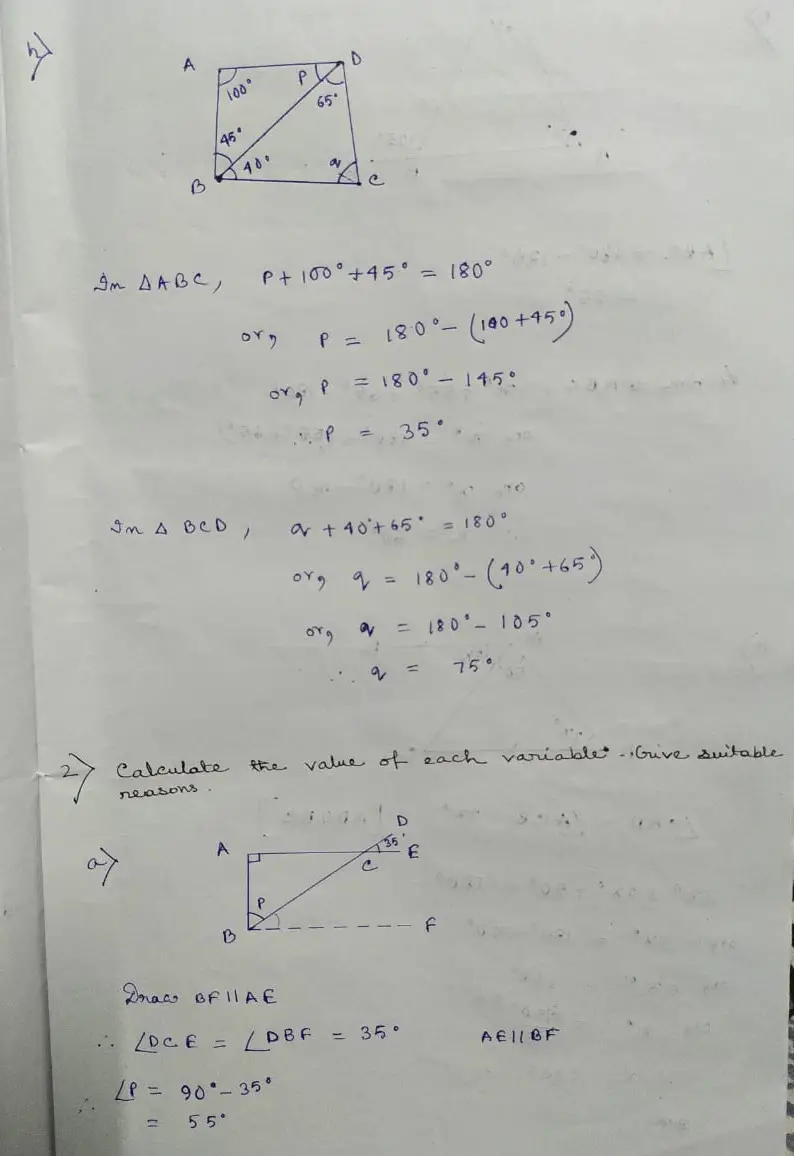 h)
A
D
100°
P
65°
45°
40°
q
B
C
In △ABC, P + 100° + 45° = 180°
or, P = 180° - (100 + 45°)
or, P = 180° - 145°
∴ P = 35°
In △ BCD, q + 40° + 65° = 180°
or, q = 180° - (40° + 65°)
or, q = 180° - 105°
∴ q = 75°
2) Calculate the value of each variable. Give suitable
reasons.
a)
D
A
35°
E
C
P
B
F
Draw BF || AE
∴ ∠DCE = ∠DBF = 35° AE || BF
∴ ∠P = 90° - 35°
= 55°